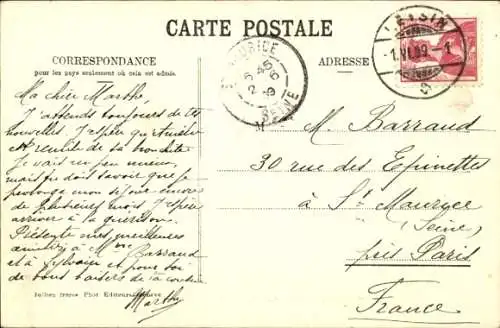 CARTE POSTALE
CORRESPONDANCE
pour les pays seulement où cela est admis.
ADRESSE
LEYSIN
-1.VI.09.-1
MAURICE
SEINE
Ma chère Marthe,
J'attends toujours de tes
nouvelles. J'espère que
remise de ta bronchite
Je vais un peu mieux,
mais je dois savoir que je
prolonge mon séjour encore
de plusieurs mois. J'espère
arriver à la guérison.
Présente mes meilleures
amitiés à Mme Barraud
et à Sylvain et pour toi
de bons baisers de ta
Marthe
M. Barraud
30 rue des Epinettes
à St. Maurice
(Seine)
près Paris
France
Jullien frères Phot Editeurs, Genève